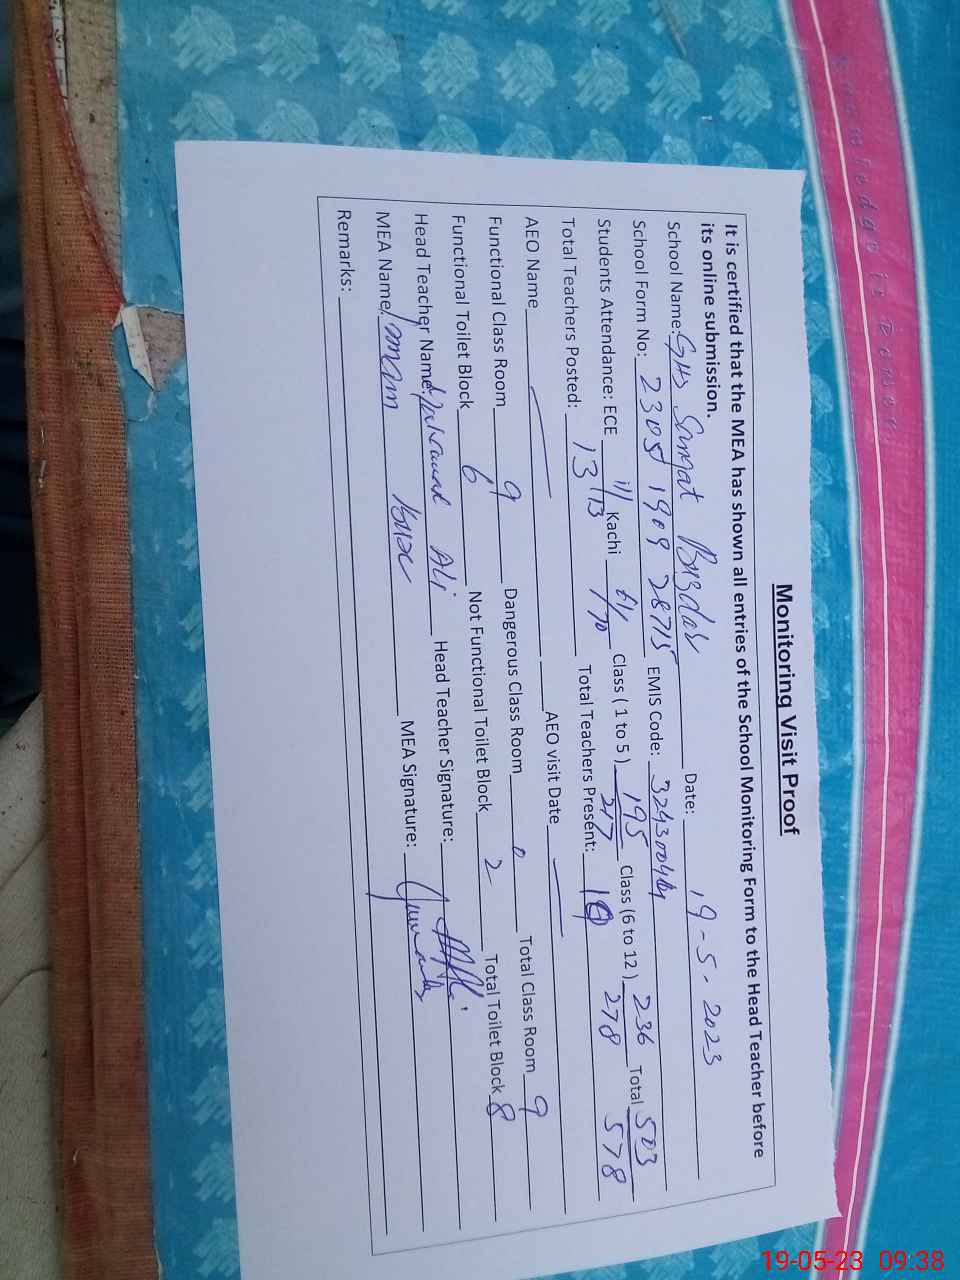 Monitoring Visit Proof
It is certified that the MEA has shown all entries of the School Monitoring Form to the Head Teacher before
its online submission.
School Name: GHS Samat Buzdar Date: 19-5-2023
School Form No: 2305 1909 28715 EMIS Code:
Students Attendance: ECE 11/13 Kachi /70 Class ( 1 to 5 ) 195/217 Class (6 to 12 ) 236/278 Total 503/578
Total Teachers Posted: 13 Total Teachers Present:
AEO Name AEO visit Date
Functional Class Room 9 Dangerous Class Room 0 Total Class Room 9
Functional Toilet Block 6 Not Functional Toilet Block 2 Total Toilet Block 8
Head Teacher Name: Muhammad Ali Head Teacher Signature:
MEA Name: Imam Bux MEA Signature:
Remarks:
19-05-23 09:38